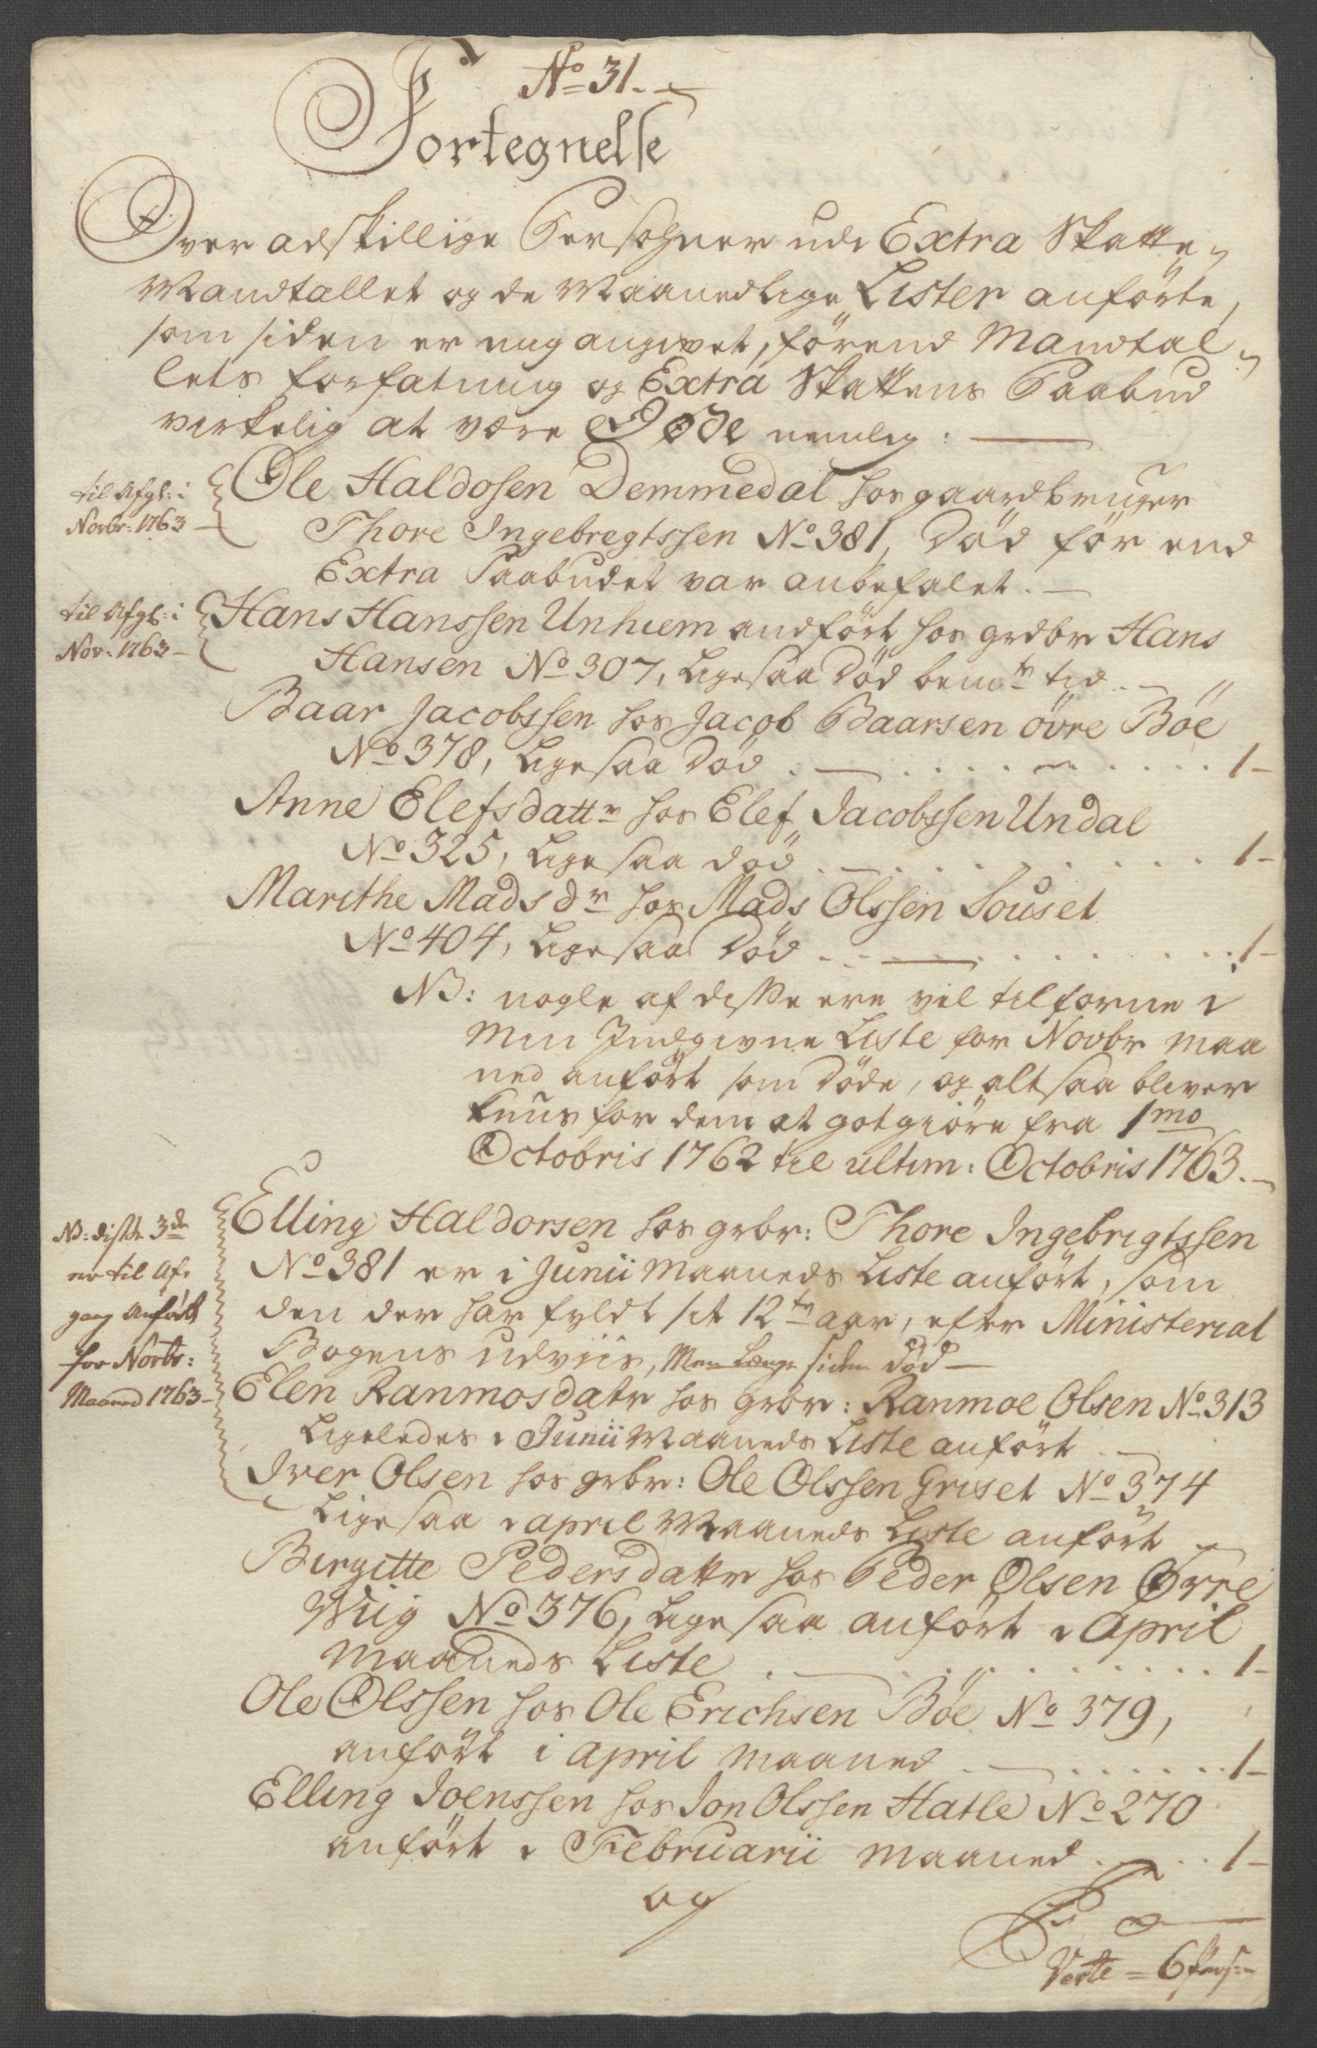 No 31.
Fortegnelse
Over adskillige Personer udi Extra Skatte-
Mandtallet og de Maanedlige Lister anförte,
som siden er mig angivet, förend Mandtal-
lets forfatning og Extra Skattens Paabud
virkelig at være Døde nemlig:
til Afg: i
Novbr: 1763
Ole Haldosen Demmedal hos gaardbruger
Thore Ingebregtssen No 381, Død för end
Extra Paabudet var anbefalet.
til Afg: i
Nov: 1763
Hans Hanssen Unhiem andfört hos grdbr Hans
Hansen No 307, Ligesaa Död bemte tid.
Baar Jacobssen hos Jacob Baarsen övre Böe
No 378, Ligesaa Död . . . . . 1-
Anne Elefsdattr hos Elef Jacobssen Undal
No 325, Ligesaa död . . . . . 1-
Marithe Madsdr hos Mads Olssen Souset
No 404, Ligesaa Död . . . . . 1-
NB: nogle af disse ere vel tilforne i
Min Indgivne Liste for Novbr maa
ned anfört som Döde, og altsaa bliver
huus for dem at gotgiöre fra 1mo
Octobris 1762 til ultim: Octobris 1763.
NB: disse 3de
er til Af-
gang Anfördt
for Novbr:
Maaned 1763
Elling Haldorsen hos grbr: Thore Ingebrigtssen
No 381 er i Junii Maaneds Liste anfört, som
den der har fyldt sit 12te aar, efter Ministerial
Bogens udviis, Men Længe siden död
Elen Ranmosdatr hos grbr: Ranmoe Olsen No 313
Ligeledes i Junii Maaneds Liste anfört
Iver Olsen hos grbr: Ole Olssen Griset No 374
Ligesaa i april Maaneds Liste anfört
Birgitte Pedersdattr hos Peder Olsen Øvre
Wiig No 376, Ligesaa anfört i April
Maaneds Liste . . . . . 1-
Ole Olssen hos Ole Erichsen Böe No 379,
anfört i April maaned . . . . . 1-
Elling Joenssen hos Jon Olssen Hatle No 270
anfört i Februarii maaned . . . . . 1-
og
Verte = 6